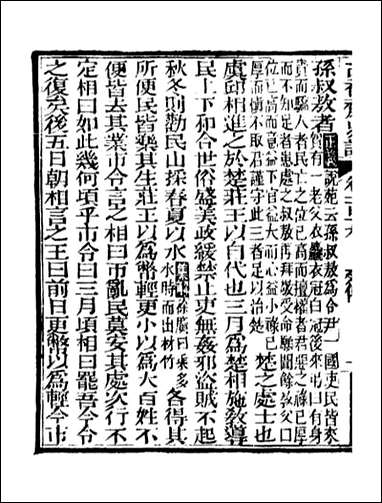 孫叔敖者正義說苑云孫叔敖為令尹一國吏民皆來
賀有一老父衣麤衣冠白冠後來弔曰有身
貴而驕人者民亡之位已高而擅權者君惡之祿已厚
而不知足者患處之叔敖再拜敬受命願聞餘教父曰
位已高而意益下官益大而心益小祿已
厚而慎不取君謹守此三者足以治楚 楚之處士也
虞邱相進之於楚莊王以自代也三月為楚相施教導
民上下和合世俗盛美政緩禁止吏無姦邪盜賊不起
秋冬則勸民山採春夏以水集解徐廣曰乘多水時而出材竹各得其
所便民皆樂其生莊王以為幣輕更小以為大百姓不
便皆去其業市令言之相曰市亂民莫安其處次行不
定相曰如此幾何頃乎市令曰三月頃相曰罷吾今令
之復矣後五日朝相言之王曰前日更幣以為輕今市